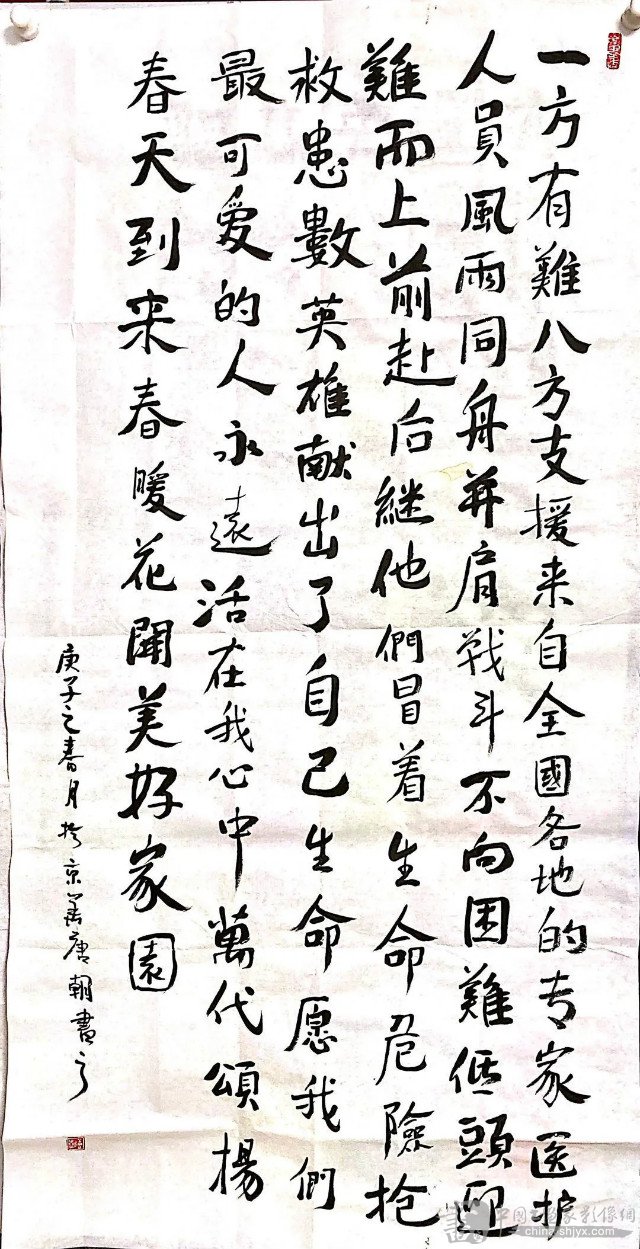 一方有難八方支援来自全國各地的专家医护
人員風雨同舟并肩戰斗不向困難低頭迎
難而上前赴后継他們冒着生命危險抢
救患數英雄献出了自己生命愿我們
最可爱的人永遠活在我心中萬代頌揚
春天到来春暖花開美好家園
庚子之春月於京唐朝書之
中国书画家影像網
china-shjyx.com